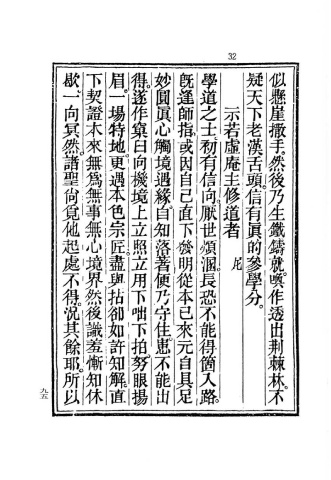 32
似懸崖撒手。然後乃生鐵鑄就。喚作透出荊棘林。不
疑天下老漢舌頭。信有眞的參學分。
示若虛庵主修道者 尼
學道之士。初有信向。厭世煩溷。長恐不能得箇入路。
旣逢師指。或因自己直下發明從本已來元自具足
妙圓眞心。觸境遇緣。自知落著。便乃守住。患不能出
得。遂作窠臼。向機境上立照立用。下咄下拍。努眼揚
眉。一場特地。更遇本色宗匠。盡與拈却如許知解。直
下契證本來無爲無事無心境界。然後識羞慚知休
歇。一向冥然。諸聖尚覓他起處不得。況其餘耶。所以
九五